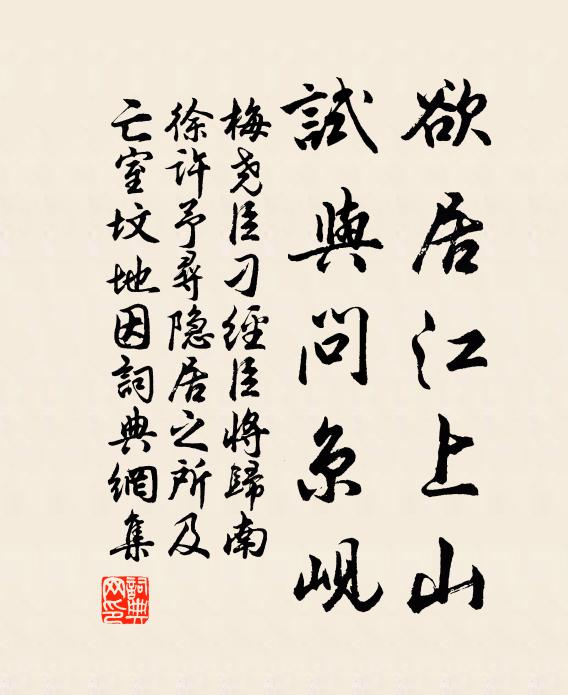 欲居江上山
試與問京峴
梅尧臣刁經臣將歸南
徐許予尋隐居之所及
亡室坟地因詞典網集
詞典
网印